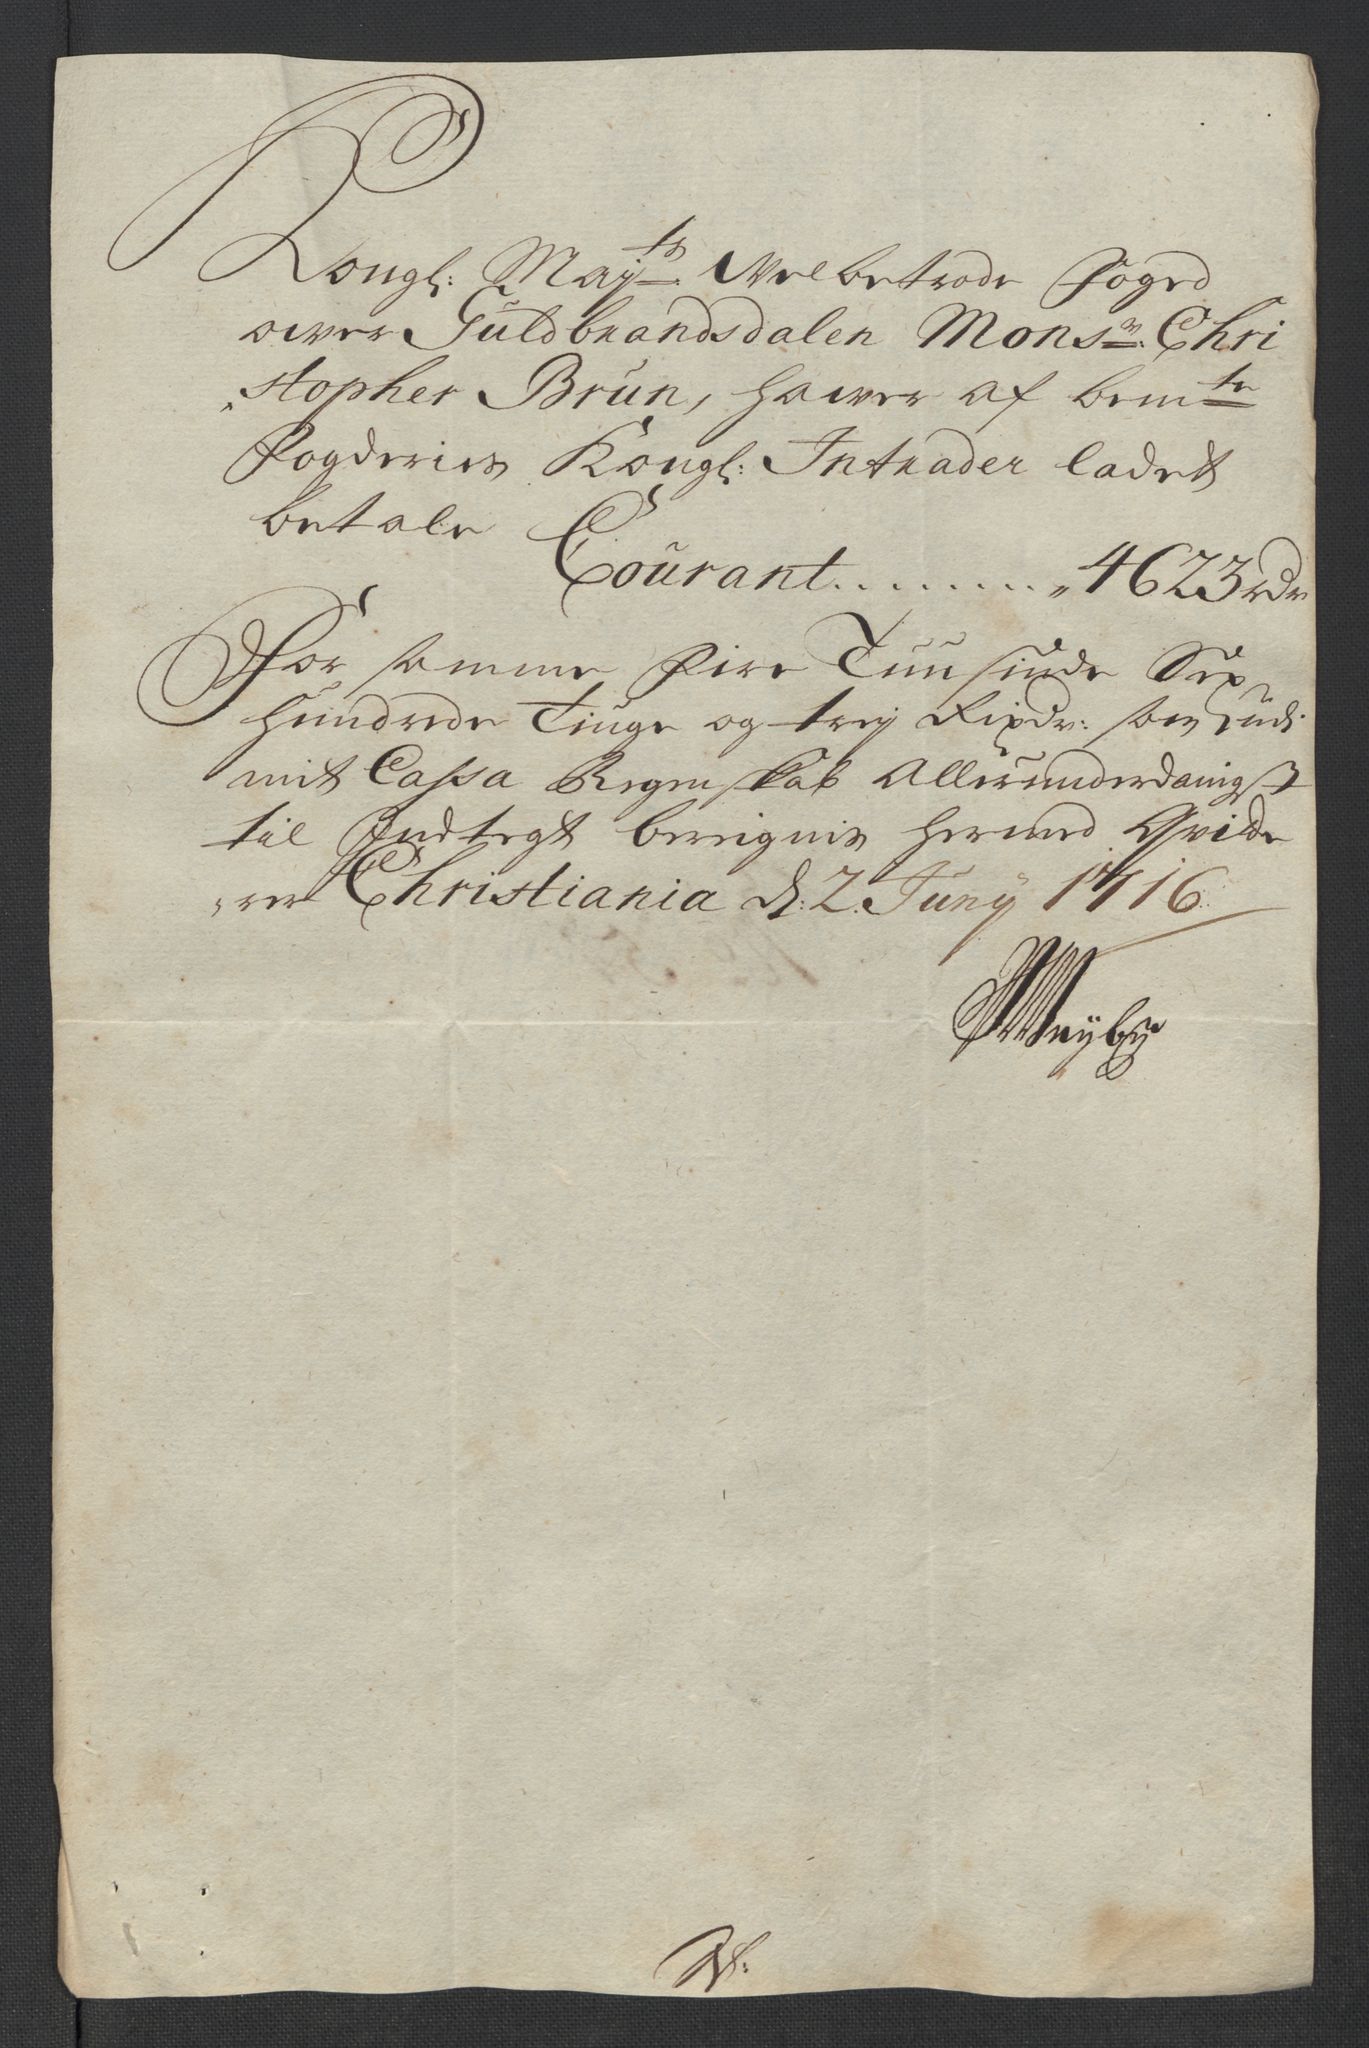 Kongl: Maÿ.ts Velbetrode Foged
over Guldbrandsdalen Monsr: Chri
„stopher Brun, hafver af bemte
Fogderies Kongl: Intrader ladet
betale
Courant. . . . . . . . . „ 4623 rdr
For samme Fire Tuusinde Sex
Hundrede Tiuge og treÿ Rixdr: som udi
mit Cassa Regenskab Allerunderdanigst
til Indtegt bereignis hermed Qvitte
„rer Christiania d: 2. Junÿ 1716.